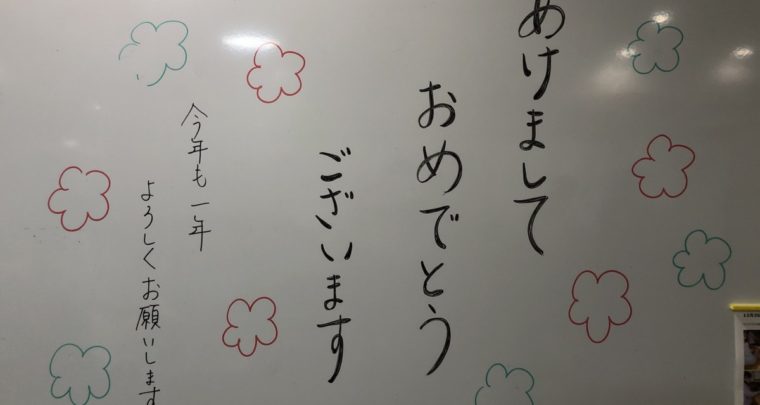 あけまして
おめでとう
ございます
今年も一年
よろしくお願いします